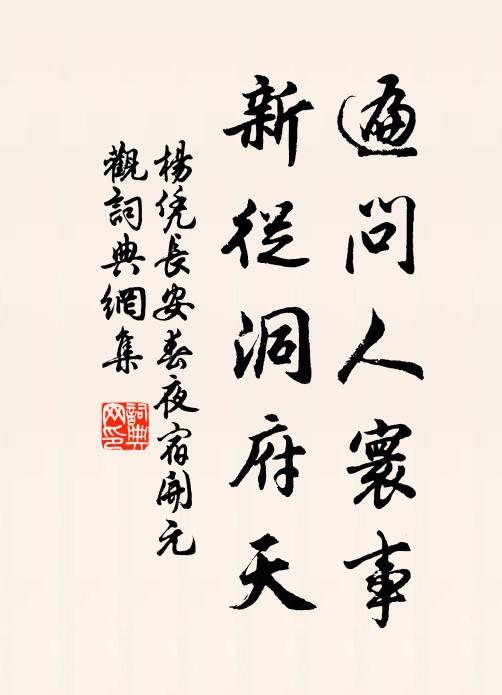 遍問人寰事
新從洞府天
楊凭長安春夜宿開元
觀詞典網集
詞典
网印